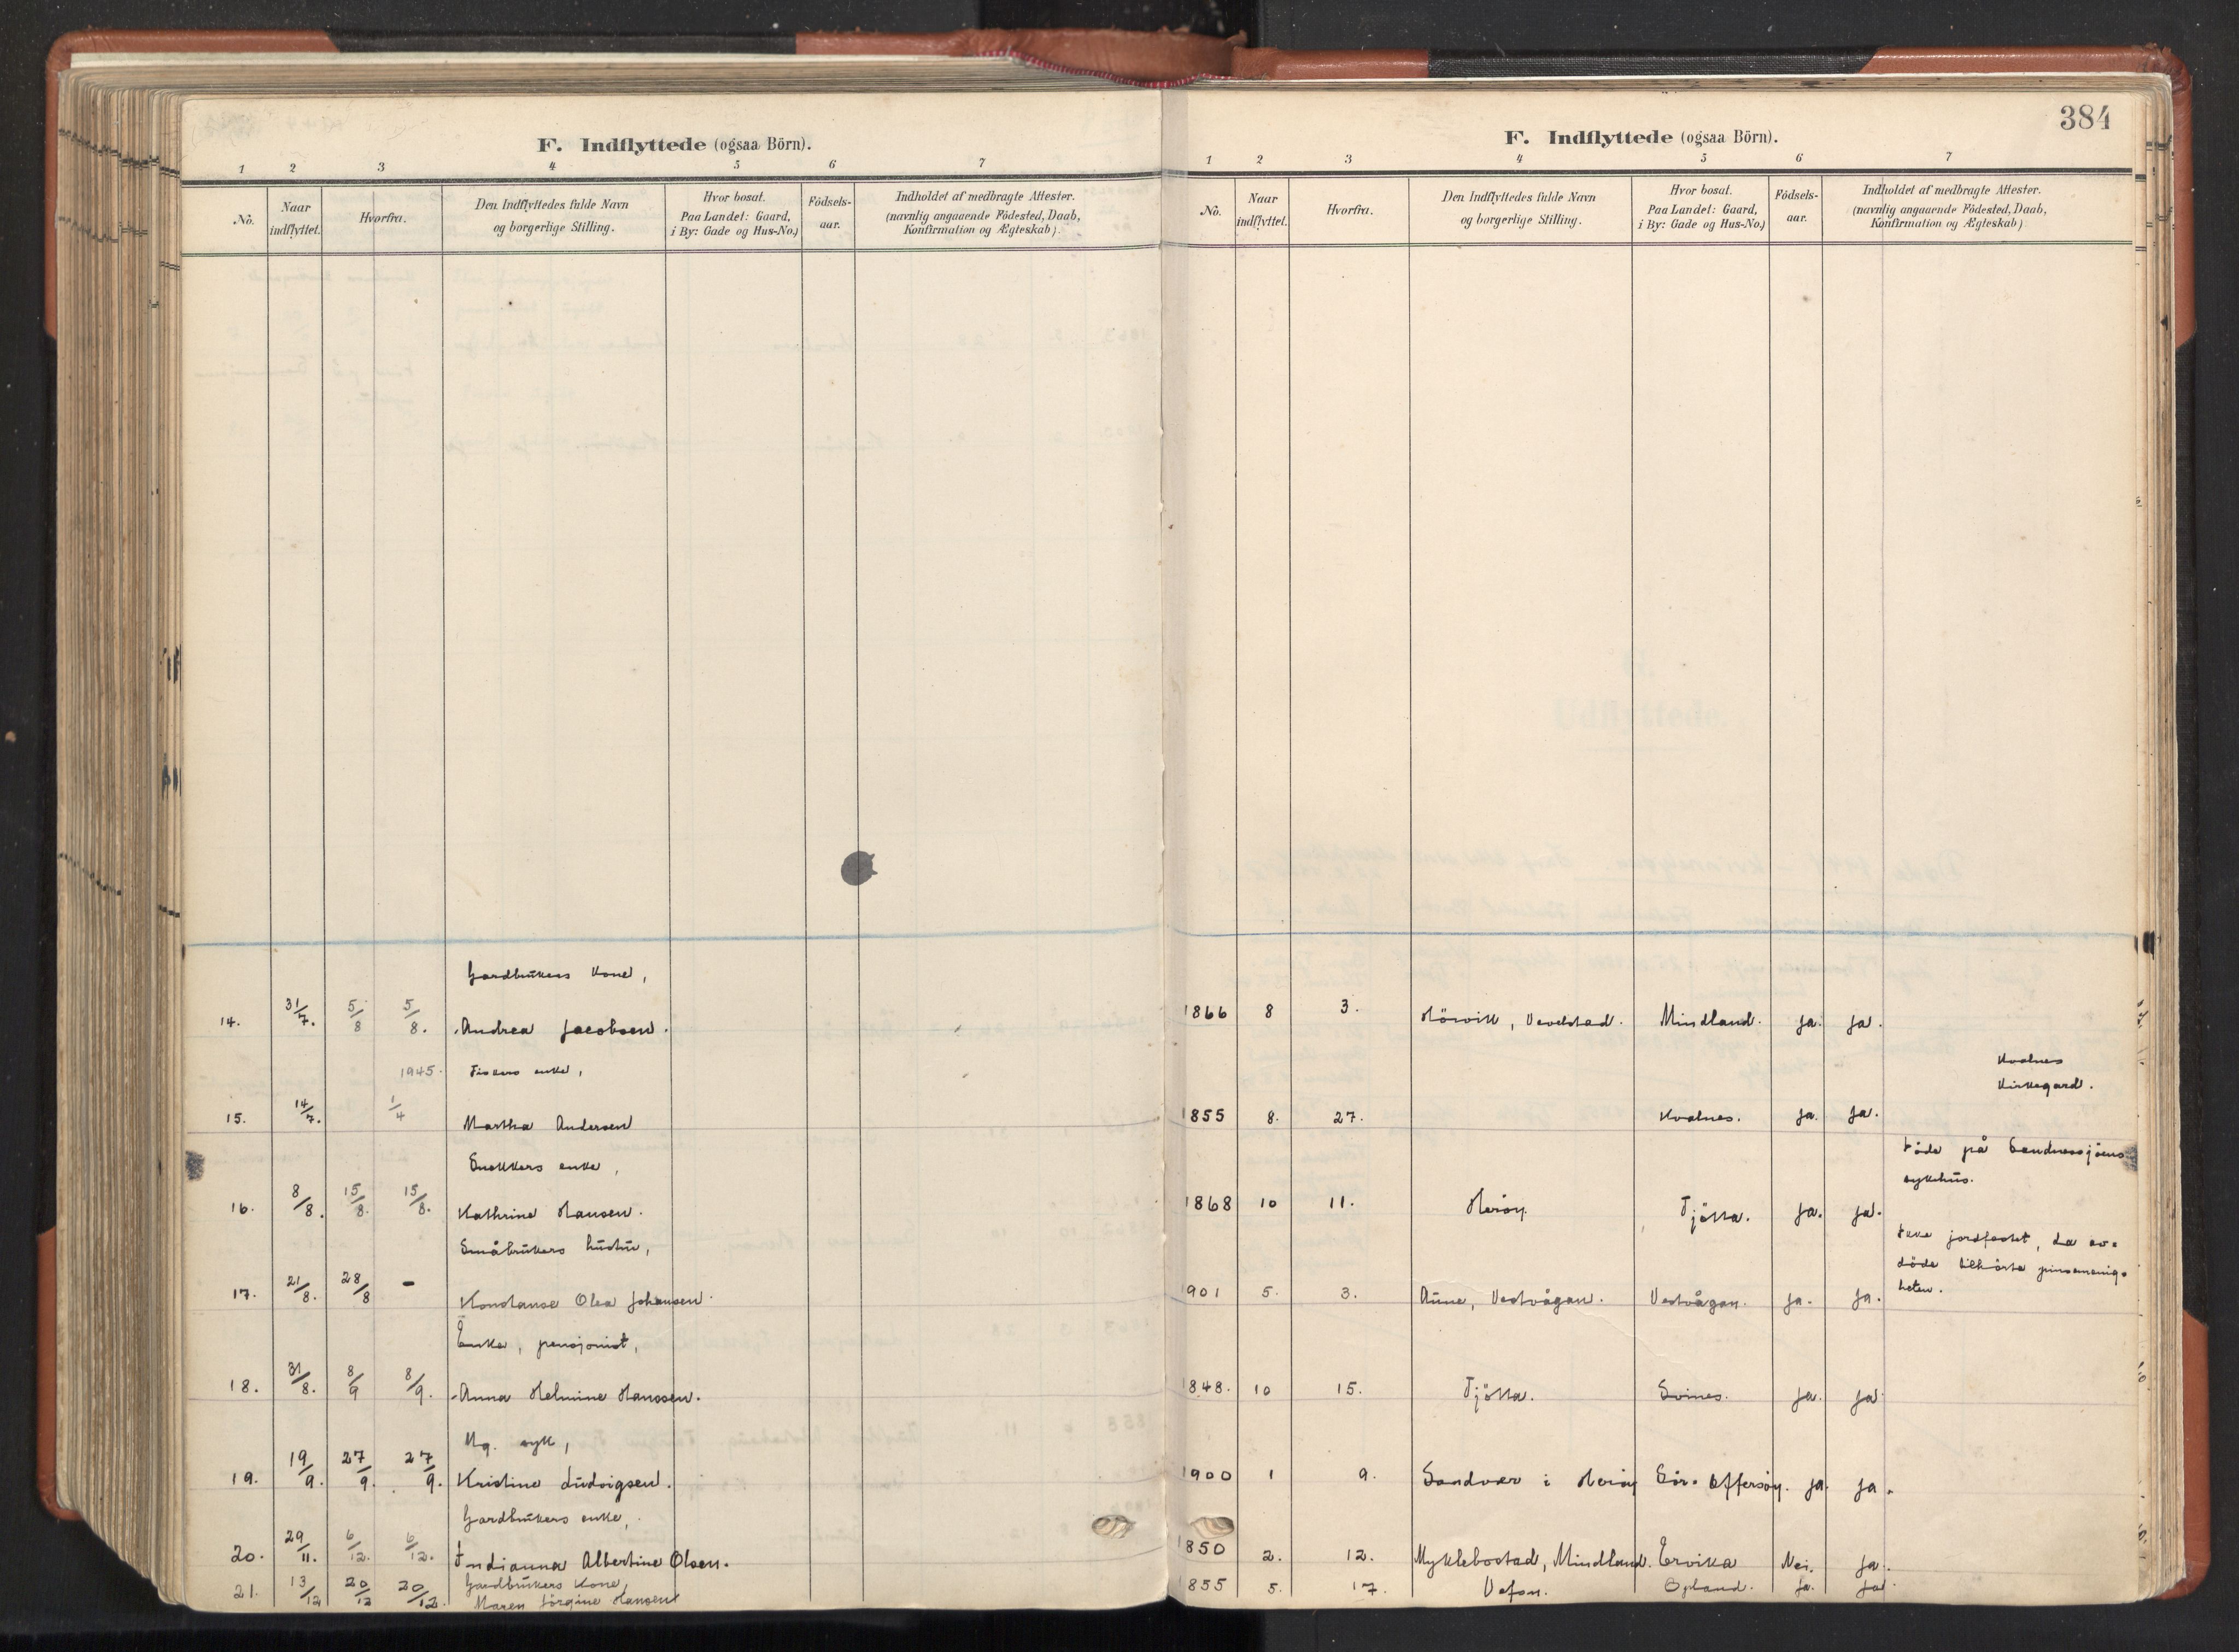 384
F. Indflyttede (ogsaa Börn).
1 2 3 4 5 6 7
No. Naar indflyttet. Hvorfra. Den Indflyttedes fulde Navn og borgerlige Stilling. Hvor bosat. Paa Landet: Gaard, i By: Gade og Hus-No.) Födsels-aar. Indholdet af medbragte Attester. (navnlig angaaende Födested, Daab, Konfirmation og Ægteskab).
Gardbrukers kone,
14. 31/7. 5/8 5/8. Andrea Jacobsen.
1945. Fiskers enke,
15. 14/7. 1/4 Martha Andersen
Snekkers enke,
16. 8/8. 15/8. 15/8. Kathrine Hansen.
Småbrukers hustru,
17. 21/8. 28/8 - Konstanse Olea Johansen.
Enke, pensjonist,
18. 31/8. 8/9 8/9. Anna Helmine Hanssen.
Ug. syk,
19. 19/9. 27/9. 27/9. Kristine Ludvigsen.
Gardbrukers enke,
20. 29/11. 6/12. 6/12. Indianna Albertine Olsen.
Gardbrukers kone,
21. 13/12 20/12 20/12. Maren Jörgine Hansen
F. Indflyttede (ogsaa Börn).
1 2 3 4 5 6 7
No. Naar indflyttet. Hvorfra. Den Indflyttedes fulde Navn og borgerlige Stilling. Hvor bosat. Paa Landet: Gaard, i By: Gade og Hus-No.) Födsels-aar. Indholdet af medbragte Attester. (navnlig angaaende Födested, Daab, Konfirmation og Ægteskab).
1866 8 3. Hörvik, Vevelstad. Mindland. ja. ja.
Kvalnes
kirkegard.
1855 8. 27. Kvalnes. ja. ja.
Döde på Sandnessjöens
sykehus.
1868 10 11. Heröy. Tjötta. ja. ja.
Ikke jordfestet, da av-
döde tilhörte pinsemenig-
heten.
1901 5. 3. Aune, Vestvågan. Vestvågan. ja. ja.
1848. 10 15. Tjötta. Svines. ja. ja.
1900 1 9. Sandvær i Heröy Sör-Offersöy. ja. ja.
1850 2. 12. Myklebostad, Mindland. Ervika Nei. ja.
1855 5. 17. Vefsn. Opland. ja. ja.